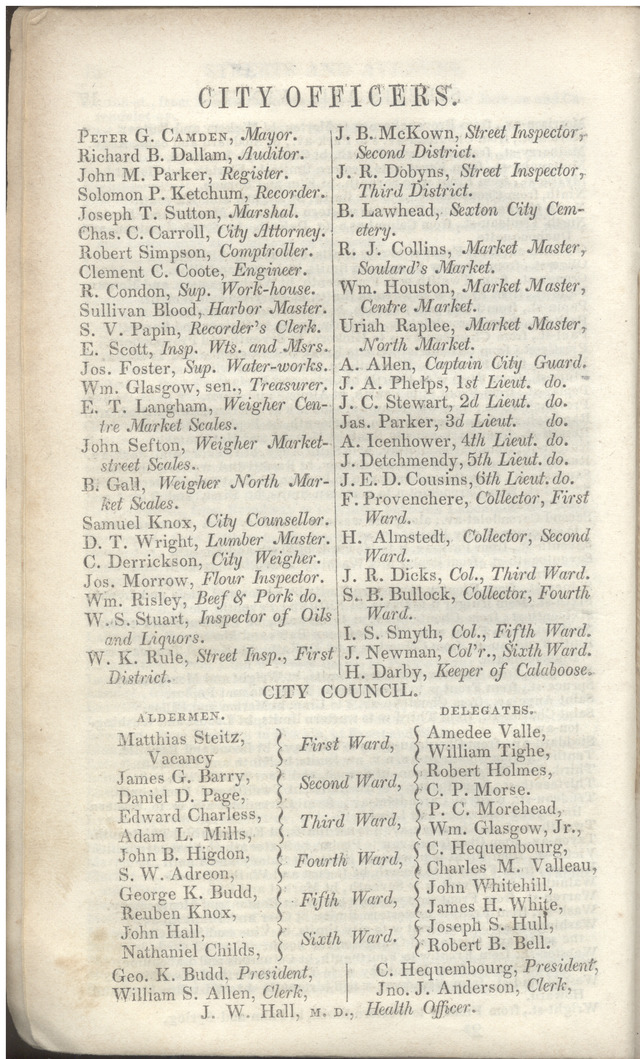 CITY OFFICERS.
PETER G. CAMDEN, Mayor.
Richard B. Dallam, Auditor.
John M. Parker, Register.
Solomon P. Ketchum, Recorder.
Joseph T. Sutton, Marshal.
Chas. C. Carroll, City Attorney.
Robert Simpson, Comptroller.
Clement C. Coote, Engineer.
R. Condon, Sup. Work-house.
Sullivan Blood, Harbor Master.
S. V. Papin, Recorder's Clerk.
E. Scott, Insp. Wts. and Msrs.
Jos. Foster, Sup. Water-works.
Wm. Glasgow, sen., Treasurer.
E. T. Langham, Weigher Cen-
tre Market Scales.
John Sefton, Weigher Market-
street Scales.
B. Gall, Weigher North Mar-
ket Scales.
Samuel Knox, City Counsellor.
D. T. Wright, Lumber Master.
C. Derrickson, City Weigher.
Jos. Morrow, Flour Inspector.
Wm. Risley, Beef & Pork do.
W. S. Stuart, Inspector of Oils
and Liquors.
W. K. Rule, Street Insp., First
District.
J. B. McKown, Street Inspector,
Second District.
J. R. Dobyns, Street Inspector,
Third District.
B. Lawhead, Sexton City Cem-
etery.
R. J. Collins, Market Master,
Soulard's Market.
Wm. Houston, Market Master,
Centre Market.
Uriah Raplee, Market Master,
North Market.
A. Allen, Captain City Guard.
J. A. Phelps, 1st Lieut. do.
J. C. Stewart, 2d Lieut. do.
Jas. Parker, 3d Lieut. do.
A. Icenhower, 4th Lieut. do.
J. Detchmendy, 5th Lieut. do.
J. E. D. Cousins, 6th Lieut. do.
F. Provenchere, Collector, First
Ward.
H. Almstedt, Collector, Second
Ward.
J. R. Dicks, Col., Third Ward.
S. B. Bullock, Collector, Fourth
Ward.
I. S. Smyth, Col., Fifth Ward.
J. Newman, Col'r., Sixth Ward.
H. Darby, Keeper of Calaboose.
CITY COUNCIL.
ALDERMEN. DELEGATES.
Matthias Steitz, Amedee Valle,
First Ward,
Vacancy William Tighe,
James G. Barry, Robert Holmes,
Second Ward,
Daniel D. Page, C. P. Morse.
Edward Charless, P. C. Morehead,
Third Ward,
Adam L. Mills, Wm. Glasgow, Jr.,
John B. Higdon, C. Hequembourg,
Fourth Ward,
S. W. Adreon, Charles M. Valleau,
George K. Budd, John Whitehill,
Fifth Ward,
Reuben Knox, James H. White,
John Hall, Joseph S. Hull,
Sixth Ward.
Nathaniel Childs, Robert B. Bell.
Geo. K. Budd, President, C. Hequembourg, President,
William S. Allen, Clerk, Jno. J. Anderson, Clerk,
J. W. Hall, M. D., Health Officer.